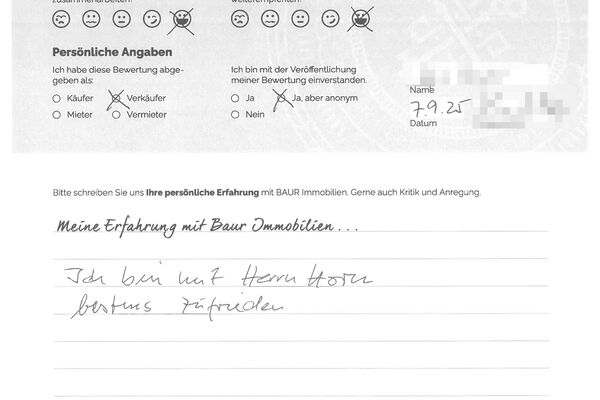 zusammenarbeiten?
weiterempfehlen?
Persönliche Angaben
Ich habe diese Bewertung abge-
geben als:
Käufer
Verkäufer
Mieter
Vermieter
Ich bin mit der Veröffentlichung
meiner Bewertung einverstanden.
Ja
Ja, aber anonym
Nein
Name
7.9.25
Datum
Bitte schreiben Sie uns Ihre persönliche Erfahrung mit BAUR Immobilien. Gerne auch Kritik und Anregung.
Meine Erfahrung mit Baur Immobilien...
Ich bin mit Herrn Horn
bestens zufrieden